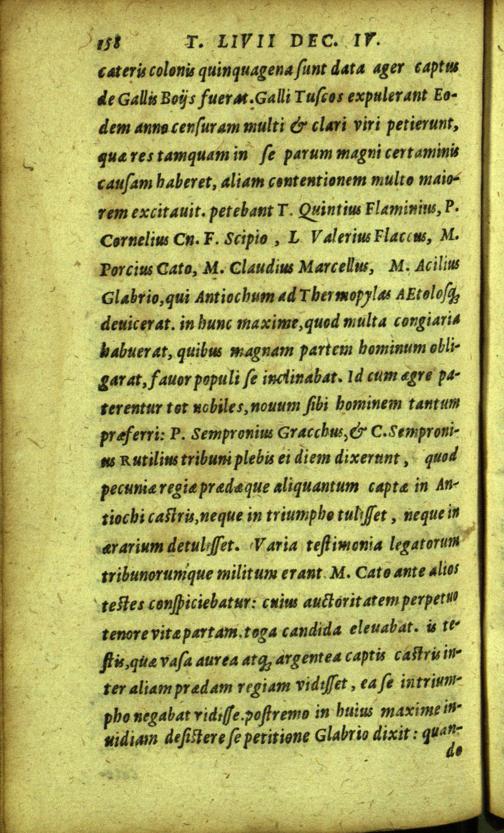 158 T. LIVII DEC. IV.
cæteris colonis quinquagena ſunt data ager captus
de Gallis Boijs fuerat. Galli Tuſcos expulerant Eo-
dem anno cenſuram multi & clari viri petierunt,
quæ res tamquam in ſe parum magni certaminis
cauſam haberet, aliam contentionem multo maio-
rem excitauit. petebant T. Quintius Flaminius, P.
Cornelius Cn. F. Scipio , L Valerius Flaccus, M.
Porcius Cato, M. Claudius Marcellus, M. Acilius
Glabrio, qui Antiochum ad Thermopylas AEtoloſq;
deuicerat. in hunc maxime, quod multa congiaria
habuerat, quibus magnam partem hominum obli-
garat, fauor populi ſe inclinabat. Id cum ægre pa-
terentur tot nobiles, nouum ſibi hominem tantum
præferri: P. Sempronius Gracchus, & C. Semproni-
us Rutilius tribuni plebis ei diem dixerunt , quod
pecuniæ regiæ prædæque aliquantum captæ in An-
tiochi caſtris, neque in triumpho tuliſſet , neque in
ærarium detuliſſet. Varia teſtimonia legatorum
tribunorumque militum erant. M. Cato ante alios
teſtes conſpiciebatur: cuius auctoritatem perpetuo
tenore vitæ partam. toga candida eleuabat. is te-
ſtis, quæ vaſa aurea atq; argentea captis caſtris in-
ter aliam prædam regiam vidiſſet, ea ſe in trium-
pho negabat vidiſſe. poſtremo in huius maxime in-
uidiam deſiſtere ſe petitione Glabrio dixit : quan-
do